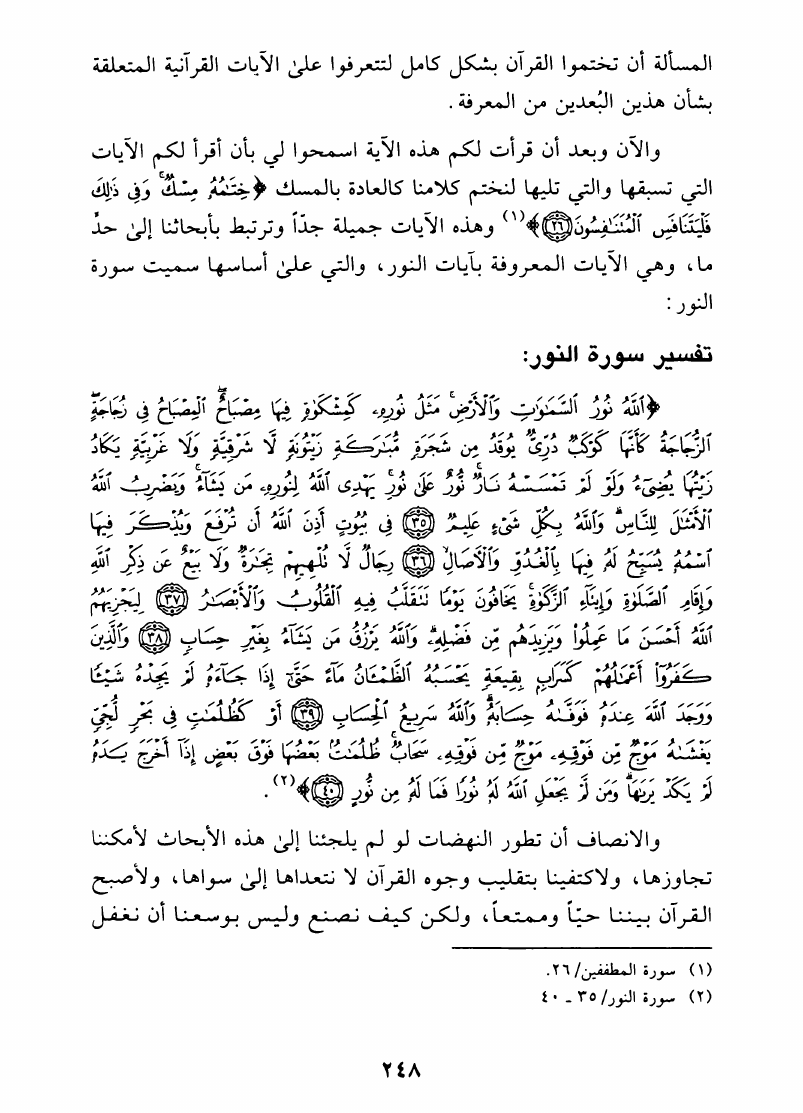 المسألة أن تختموا القرآن بشكل كامل لتتعرفوا علىٰ الآيات القرآنية المتعلقة
بشأن هذين البُعدين من المعرفة .
والآن وبعد أن قرأت لكم هذه الآية اسمحوا لي بأن أقرأ لكم الآيات
التي تسبقها والتي تليها لنختم كلامنا كالعادة بالمسك ﴿خِتَٰمُهُۥ مِسۡكٞۚ وَفِي ذَٰلِكَ
فَلۡيَتَنَافَسِ ٱلۡمُتَنَٰفِسُونَ ٢٦﴾(١) وهذه الآيات جميلة جدّاً وترتبط بأبحاثنا إلىٰ حدٍّ
ما، وهي الآيات المعروفة بآيات النور، والتي علىٰ أساسها سميت سورة
النور :
تفسير سورة النور:
﴿ٱللَّهُ نُورُ ٱلسَّمَٰوَٰتِ وَٱلۡأَرۡضِۚ مَثَلُ نُورِهِۦ كَمِشۡكَوٰةٖ فِيهَا مِصۡبَاحٌۖ ٱلۡمِصۡبَاحُ فِي زُجَاجَةٍۖ
ٱلزُّجَاجَةُ كَأَنَّهَا كَوۡكَبٞ دُرِّيّٞ يُوقَدُ مِن شَجَرَةٖ مُّبَٰرَكَةٖ زَيۡتُونَةٖ لَّا شَرۡقِيَّةٖ وَلَا غَرۡبِيَّةٖ يَكَادُ
زَيۡتُهَا يُضِيٓءُ وَلَوۡ لَمۡ تَمۡسَسۡهُ نَارٞۚ نُّورٌ عَلَىٰ نُورٖۚ يَهۡدِي ٱللَّهُ لِنُورِهِۦ مَن يَشَآءُۚ وَيَضۡرِبُ ٱللَّهُ
ٱلۡأَمۡثَٰلَ لِلنَّاسِۗ وَٱللَّهُ بِكُلِّ شَيۡءٍ عَلِيمٞ ٣٥ فِي بُيُوتٍ أَذِنَ ٱللَّهُ أَن تُرۡفَعَ وَيُذۡكَرَ فِيهَا
ٱسۡمُهُۥ يُسَبِّحُ لَهُۥ فِيهَا بِٱلۡغُدُوِّ وَٱلۡأٓصَالِ ٣٦ رِجَالٞ لَّا تُلۡهِيهِمۡ تِجَٰرَةٞ وَلَا بَيۡعٌ عَن ذِكۡرِ ٱللَّهِ
وَإِقَامِ ٱلصَّلَوٰةِ وَإِيتَآءِ ٱلزَّكَوٰةِ يَخَافُونَ يَوۡمٗا تَتَقَلَّبُ فِيهِ ٱلۡقُلُوبُ وَٱلۡأَبۡصَٰرُ ٣٧ لِيَجۡزِيَهُمُ
ٱللَّهُ أَحۡسَنَ مَا عَمِلُواْ وَيَزِيدَهُم مِّن فَضۡلِهِۦۗ وَٱللَّهُ يَرۡزُقُ مَن يَشَآءُ بِغَيۡرِ حِسَابٖ ٣٨ وَٱلَّذِينَ
كَفَرُوٓاْ أَعۡمَٰلُهُمۡ كَسَرَابِۭ بِقِيعَةٖ يَحۡسَبُهُ ٱلظَّمۡـَٔانُ مَآءً حَتَّىٰٓ إِذَا جَآءَهُۥ لَمۡ يَجِدۡهُ شَيۡـٔٗا
وَوَجَدَ ٱللَّهَ عِندَهُۥ فَوَفَّىٰهُ حِسَابَهُۥۗ وَٱللَّهُ سَرِيعُ ٱلۡحِسَابِ ٣٩ أَوۡ كَظُلُمَٰتٖ فِي بَحۡرٖ لُّجِّيّٖ
يَغۡشَىٰهُ مَوۡجٞ مِّن فَوۡقِهِۦ مَوۡجٞ مِّن فَوۡقِهِۦ سَحَابٞۚ ظُلُمَٰتُۢ بَعۡضُهَا فَوۡقَ بَعۡضٍ إِذَآ أَخۡرَجَ يَدَهُۥ
لَمۡ يَكَدۡ يَرَىٰهَاۗ وَمَن لَّمۡ يَجۡعَلِ ٱللَّهُ لَهُۥ نُورٗا فَمَا لَهُۥ مِن نُّورٍ ٤٠﴾(٢) .
والانصاف أن تطور النهضات لو لم يلجئنا إلىٰ هذه الأبحاث لأمكننا
تجاوزها، ولاكتفينا بتقليب وجوه القرآن لا نتعداها إلىٰ سواها، ولأصبح
القرآن بيننا حيّاً وممتعاً، ولكن كيف نصنع وليس بوسعنا أن نغفل
(١) سورة المطففين/٢٦.
(٢) سورة النور/٣٥ ـ ٤٠
٢٤٨